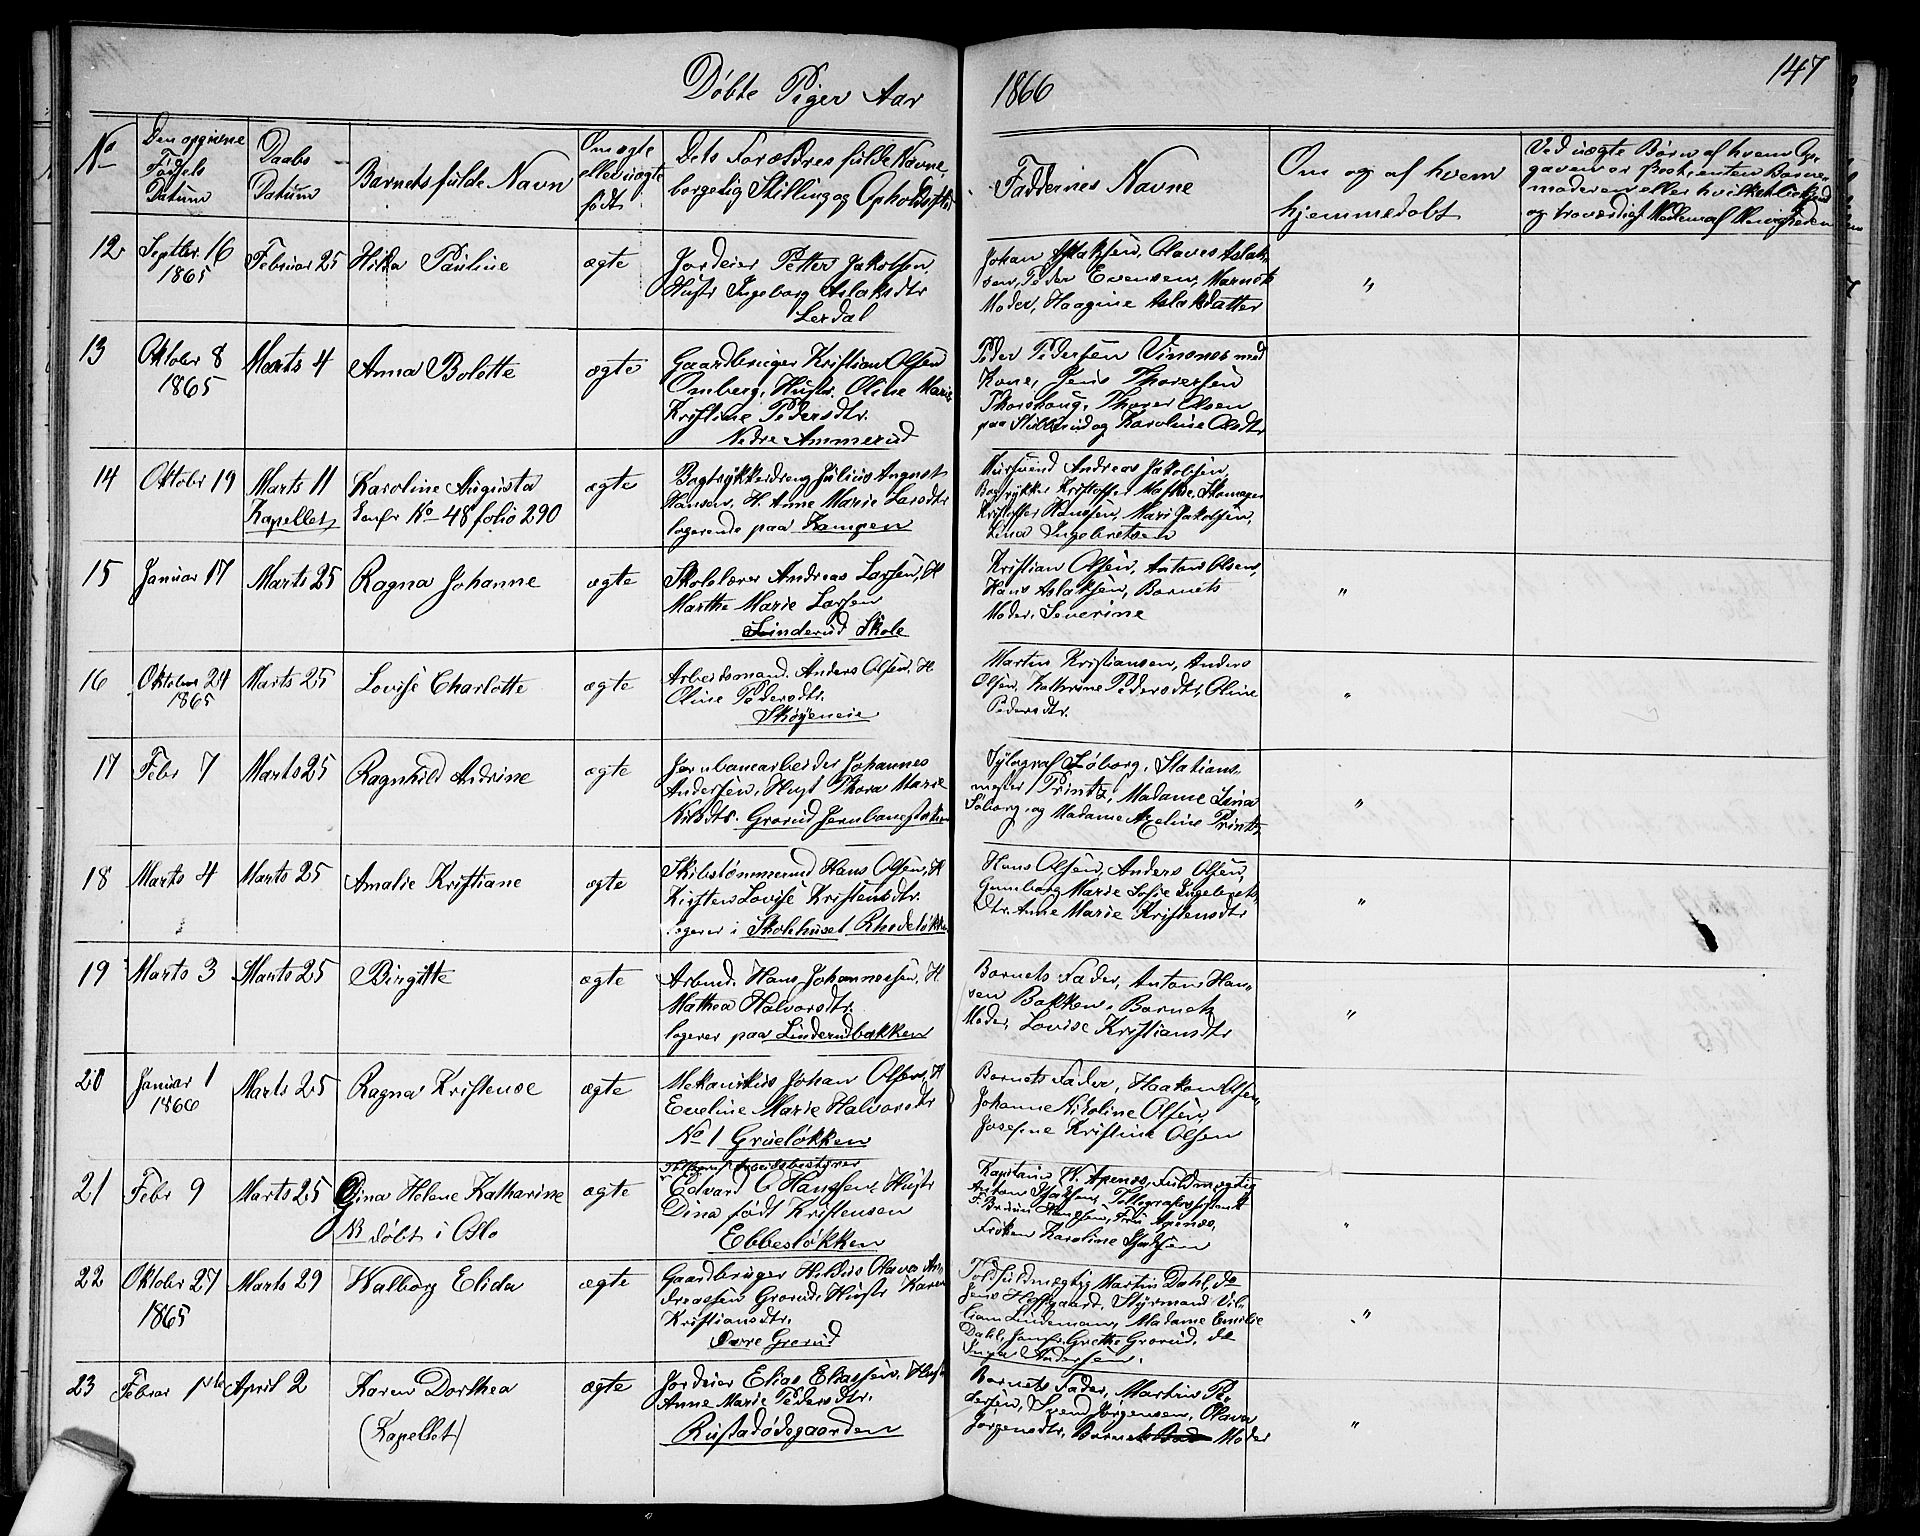 147
Døbte Piger Aar 1866
No
Den opgivne Fødsels Datum
Daabs Datum
Barnets fulde Navn
Om ægte eller uægte født
Dets Forældres fulde Navne, borgerlig Stilling og Opholdssted
Faddernes Navne
Om og af hvem hjemmedøbt
Ved uægte Børn af hvem Opgaven er
12 Septbr. 16 1865 Februar 25 Pauline ægte
Jordeier Petter Jakobsen,
Hustr Ingeborg Aslaksdtr
Lerdal
Johan Aslaksen, Olaves Aslak-
sen, Peder Evensen, Barnets
Moder, Haagine Aslaksdatter
"
13 Oktober 8 1865 Marts 4 Anna Bolette ægte
Gaardbruger Kristian Olsen
Omberg, Hustr. Oline Marie
Kristine Pedersdtr.
Nedre Ammerud
Peder Pedersen Vinsnes med
Kone, Jens Thorersen
Thorshaug, Thorer Olsen
paa og Karoline Olsdtr
14 Oktobr 19 Marts 11 Kapellet Karoline Augusta ægte
Jevnfr No 48 folio 290
Bogtrykkerdreng Julius August
Hansen, H. Anne Marie Larsdtr
logerende paa Kampen
Mursvend Andreas Jakobsen,
Bogtrykker Kristoffer Skomager
Kristoffer Hanssen, Mari Jakobsen,
Lina Ingebretsen
15 Januar 17 Marts 25 Ragna Johanne ægte
Skolelærer Andreas Larsen, H
Marthe Marie Larsen
Linderud Skole
Kristian Olsen, Anton Olsen,
Hans Aslaksen, Barnets
Moder, Severine
"
16 Oktober 24 1865 Marts 25 Lovise Charlotte ægte
Arbeidsmand Anders Olsen, H
Oline Pedersdtr.
Skøyeneie
Martin Kristiansen, Anders
Olsen, Kathrine Pedersdtr, Oline
Pedersdtr.
"
17 Febr 7 Marts 25 Ragnhild Andrine ægte
Jernbanearbeider Johannes
Andersen, Hust Thora Marie
Nilsdtr. Grorud Jernbanestation
Xylograf Søborg, Stations-
mester Printz, Madame Lina
Søborg, og Madame Axeline Printz
"
18 Marts 4 Marts 25 Amalie Kristiane ægte
Skibstømmermd Hans Olsen, H
Kirsten Lovise Kristensdtr.
logerer i Skolehuset Rhodeløkken
Hans Olsen, Anders Olsen,
Gunborg Marie Sofie Ingebrets-
dtr. Anne Marie Kristensdtr
"
19 Marts 3 Marts 25 Birgitte ægte
Arbmd. Hans Johannessen, H
Mathea Halvorsdtr.
logerer paa Linderudbakken
Barnets Fader, Anton Han-
sen Bakken, Barnets
Moder, Lovise Kristiansdtr
"
20 Januar 1 1866 Marts 25 Ragna Kristense ægte
Mekanikus Johan Olsen, H
Eveline Marie Halvorsdtr
No 1 Grüeløkken
Barnets Fader, Haakon Olsen,
Johanne Nikoline Olsen,
Josefine Kristine Olsen
"
21 Febr 9 Marts 25 Gina Helene Katharine ægte
NB døbt i Oslo
Edvard C Hanssen, Hustr
Dina født Kristensen
Ebbesløkken
Kaptain W. Apenes, Fuldmægtig
Anton
Hanssen, Fru Apenes,
Frøken Karoline
"
22 Oktober 27 1865 Marts 29 Walborg Elida ægte
Gaardbruger Hildus Olava An-
dreassen Grorud, Hustr Karen
Kristiansdtr.
Øvre Grorud
Toldfuldmægtig Martin Dahl, do
Jens Hoffgaard, Styrmand Vil-
liam Lindeman, Madame Emilie
Dahl, Jomfr. Grethe Grorud, do
Inga Andersen.
"
23 Febrar 1ste April 2 Karen Dorthea ægte
(Kapellet)
Jordeier Elias Eliassen, Hust
Anne Marie Pedersdtr.
Rustadødegaarden
Barnets Fader, Martin Pe-
dersen, Svend Jørgensen, Olava
Jørgensdtr, Barnets Moder
"